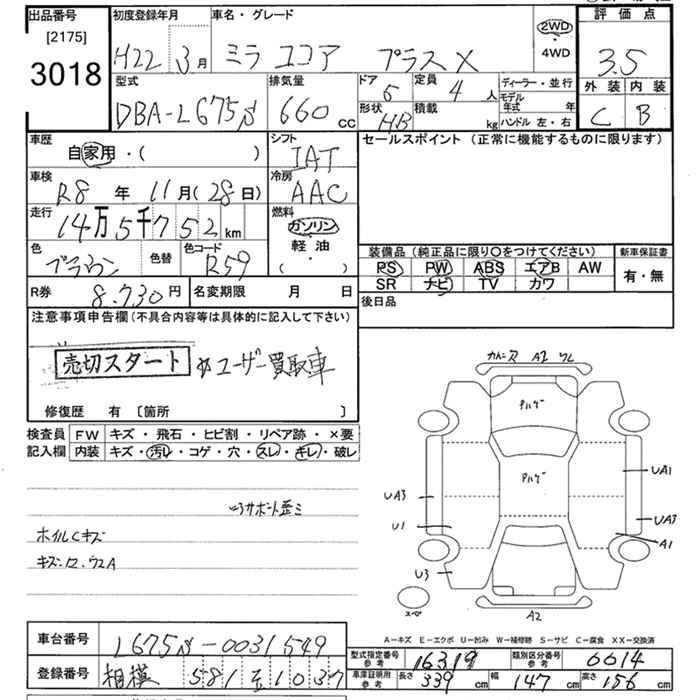 出品番号 [2175] 3018
初度登録年月 H22年 3月
車名・グレード ミラ ココア プラスX
2WD・4WD
評価点 3.5
外装 C 内装 B
型式 DBA-L675S
排気量 660 cc
ドア 5
形状 HB
定員 4人
積載 kg
ディーラー・並行
モデル年式 年
ハンドル 左・右
車歴 自家用・( )
シフト IAT
車検 R8年 11月(28日)
冷房 AAC
走行 14万5千752km
燃料 ガソリン 軽油 ・( )
色 ブラウン
色替
色コード R59
R券 8,730円
名変期限 月 日
セールスポイント(正常に機能するものに限ります)
装備品(純正品に限り〇をつけてください)
PS PW ABS エアB AW
SR ナビ TV カワ
新車保証書 有・無
後日品
注意事項申告欄(不具合内容等は具体的に記入して下さい)
売切スタート ☆ユーザー買取車
修復歴 有 [箇所 ]
検査員記入欄
FW キズ・飛石・ヒビ割・リペア跡・×要
内装 キズ・汚レ・コゲ・穴・スレ・キレ・破レ
サポート歪ミ
ホイルCキズ
A2
アルゲ
アルゲ
UA1
UA3
UA3
U1
A1
U3
スペ
A2
A-キズ E-エクボ U-凹み W-補修跡 S-サビ C-腐食 XX-交換済
車台番号 L675S-0031549
登録番号 相模 581 を 1037
型式指定番号 参考 16319
類別区分番号 参考 0014
車庫証明用 参考 長さ 339cm 幅 147cm 高さ 156cm